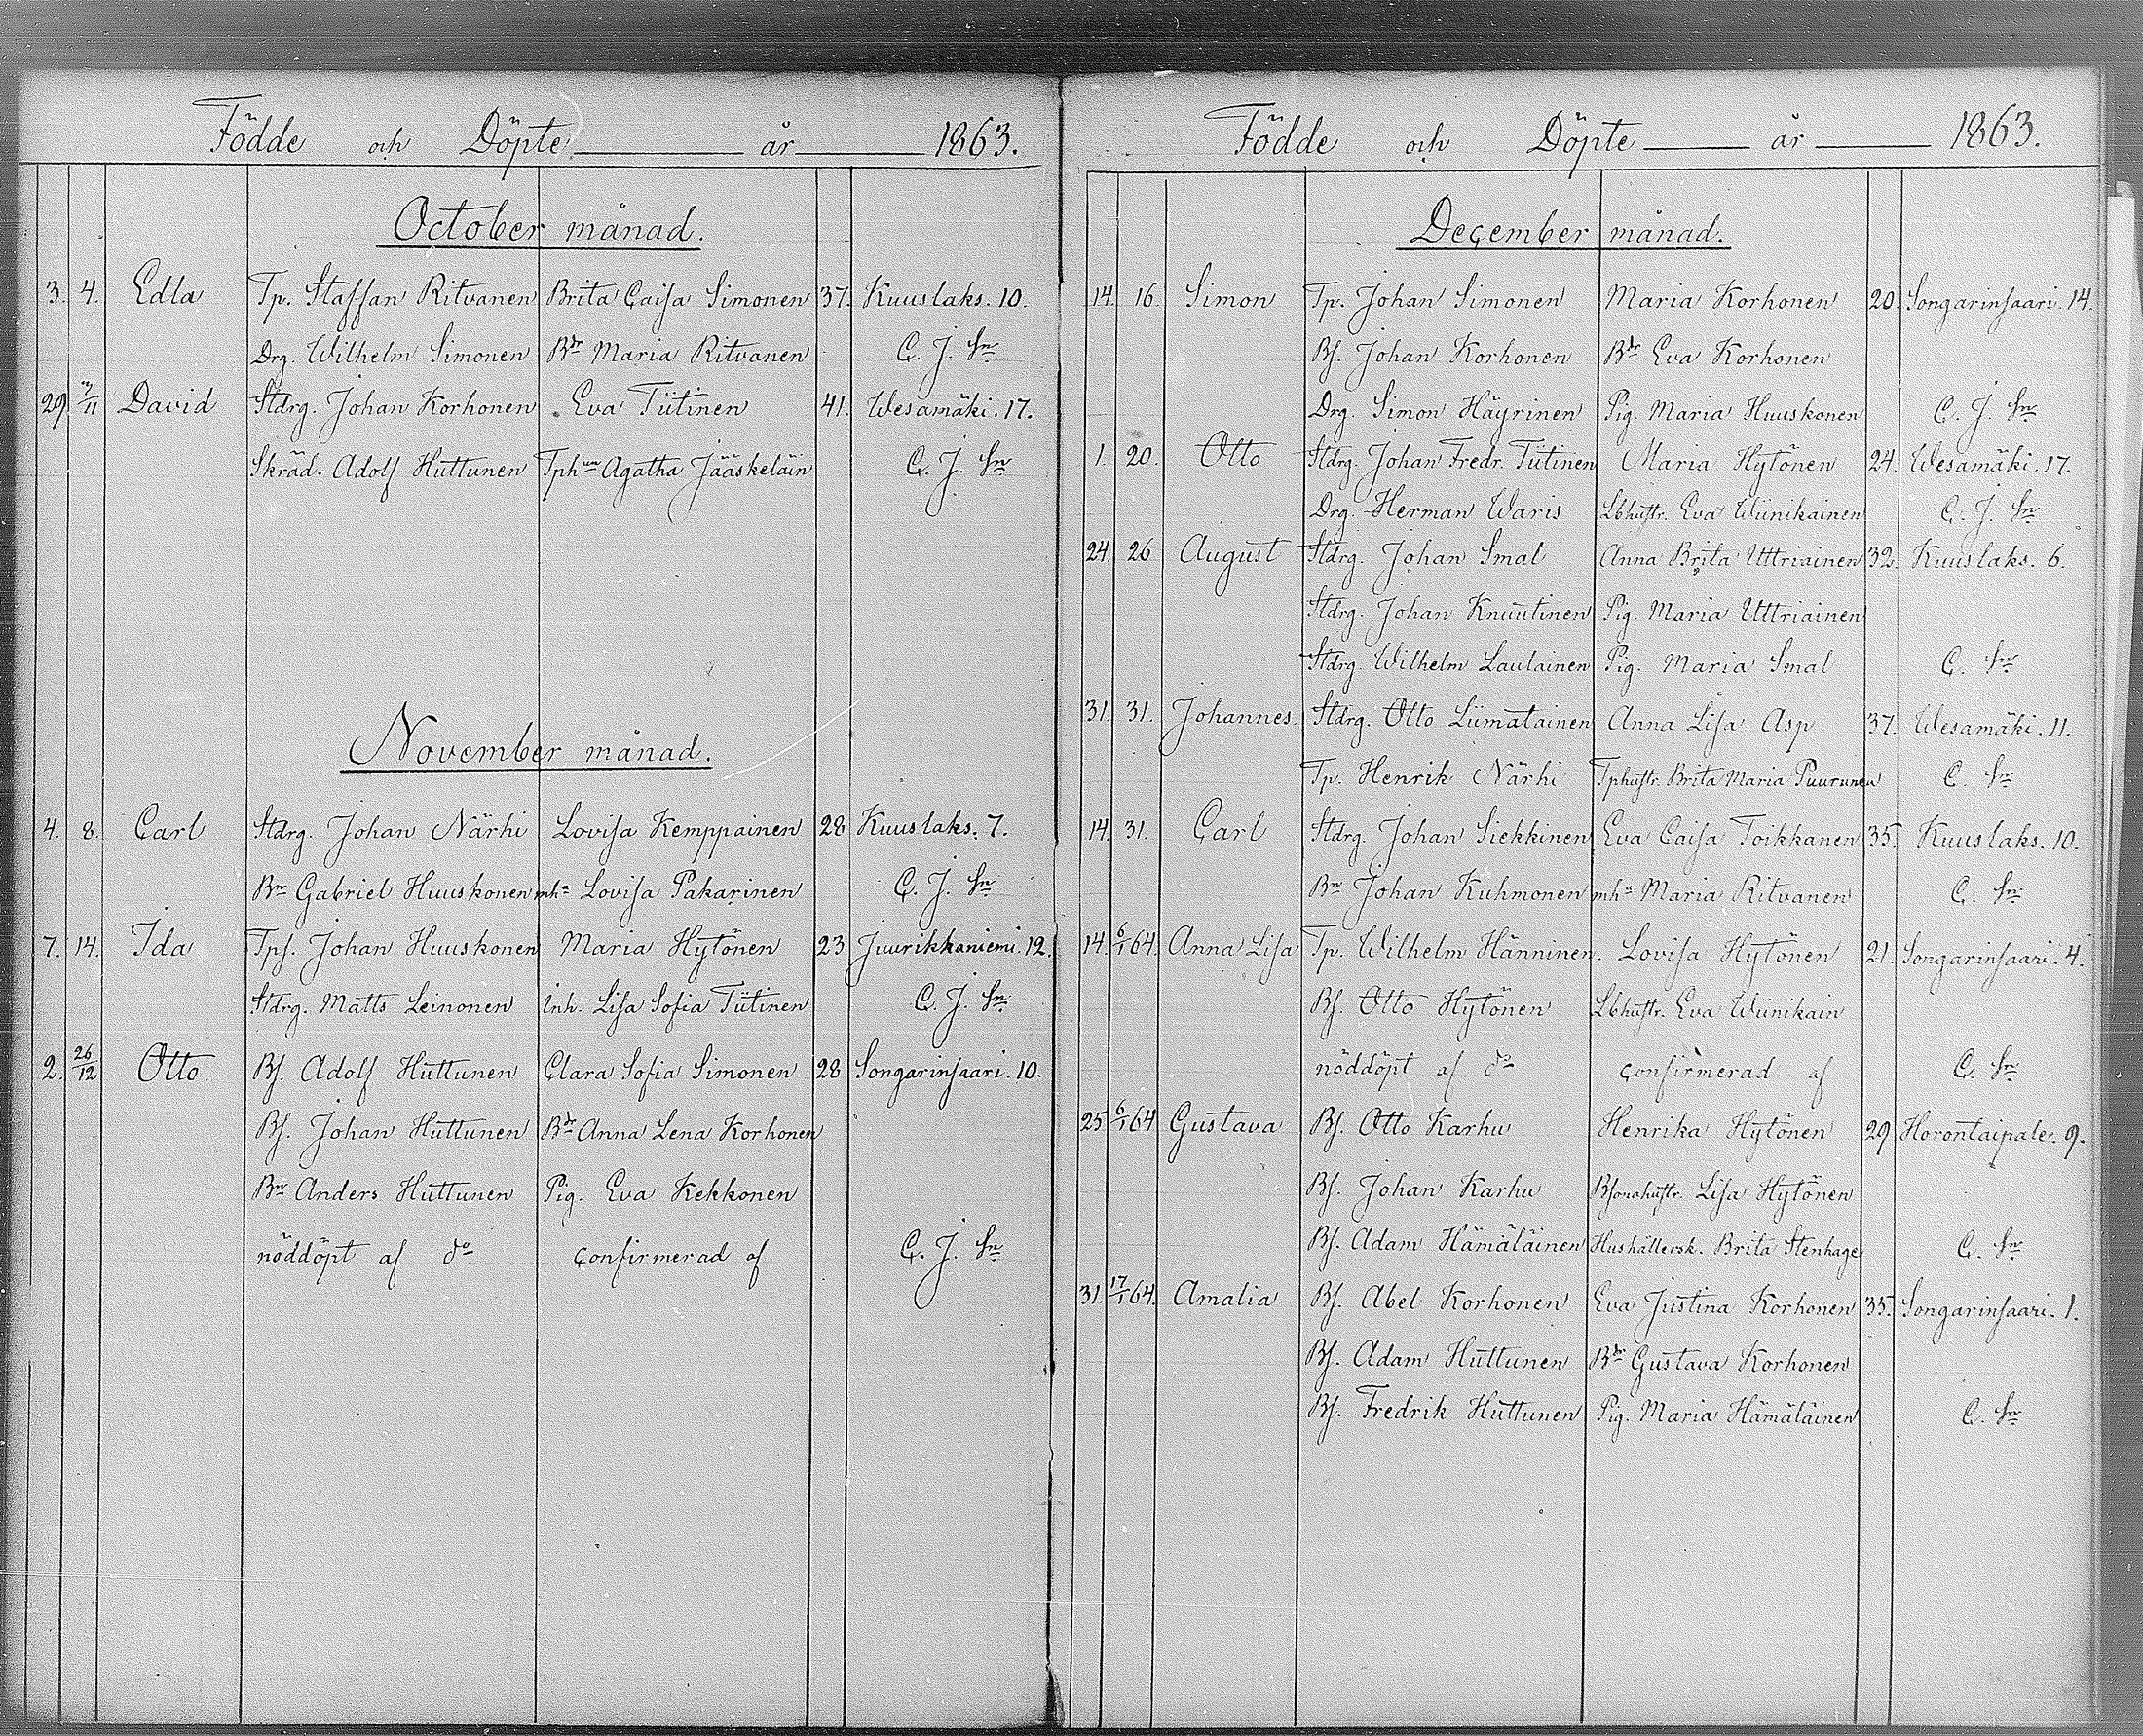 Födde och Döpte år 1863.
October månad.
3. 4. Edla Tp. Staffan Ritvanen Brita Caisa Simonen 37. Kuuslaks. 10.
Drg. Wilhelm Simonen Bdr Maria Ritvanen C. J. Sn
29. 2/11 David Stdrg. Johan Korhonen Eva Tiitinen 41. Wesamäki. 17.
Skräd. Adolf Huttunen Tphun Agatha Jääskeläin C. J. Sn
November månad.
4. 8. Carl Stdrg. Johan Närhi Lovisa Kemppainen 28 Kuuslaks. 7.
Bn Gabriel Huuskonen mha Lovisa Pakarinen C. J. Sn
7. 14. Ida Tps. Johan Huuskonen Maria Hytönen 23 Juurikkaniemi. 12.
Stdrg. Matts Leinonen Inh. Lisa Sofia Tiitinen C. J. Sn
2. 26/12 Otto. Bs. Adolf Huttunen Clara Sofia Simonen 28 Songarinsaari. 10.
Bs. Johan Huttunen Bdr Anna Lena Korhonen
Bn Anders Huttunen Pig. Eva Kekkonen
nöddöpt af do confirmerad af C. J. Sn
Födde och Döpte år 1863.
December månad.
14. 16. Simon Tp. Johan Simonen Maria Korhonen 20. Songarinsaari. 14.
Bs. Johan Korhonen Bdr Eva Korhonen
Drg. Simon Häyrinen Pig. Maria Huuskonen C. J. Sn
1. 20. Otto Stdrg. Johan Fredr. Tiitinen Maria Hytönen 24. Wesamäki. 17.
Drg. Herman Waris Lbhustr. Eva Wiinikainen C. J. Sn
24. 26 August Stdrg. Johan Smal Anna Brita Uttriainen 32. Kuuslaks. 6.
Stdrg. Johan Knuutinen Pig. Maria Uttriainen
Stdrg. Wilhelm Laulainen Pig. Maria Smal C. Sn
31. 31. Johannes. Stdrg. Otto Liimatainen Anna Lisa Asp 37. Wesamäki. 11.
Tp. Henrik Närhi Tphustr. Brita Maria Puurunen C. Sn
14. 31. Carl Stdrg. Johan Siekkinen Eva Caisa Toikkanen 35. Kuuslaks. 10.
Bn Johan Kuhmonen mha Maria Ritvanen C. Sn
14. 6/1 64. Anna Lisa Tp. Wilhelm Hänninen. Lovisa Hytönen 21. Songarinsaari. 4.
Bs. Otto Hytönen Lbhustr. Eva Wiinikain
nöddöpt af do confirmerad af C. Sn
25 6/1 64 Gustava Bs. Otto Karhu Henrika Hytönen 29 Horontaipale. 9.
Bs. Johan Karhu Bsonahustr. Lisa Hytönen
Bs. Adam Hämäläinen Hushållersk. Brita Stenhage C. Sn
31. 17/1 64. Amalia Bs. Abel Korhonen Eva Justina Korhonen 35. Songarinsaari. 1.
Bs. Adam Huttunen Bdr Gustava Korhonen
Bs. Fredrik Huttunen Pig. Maria Hämäläinen C. Sn